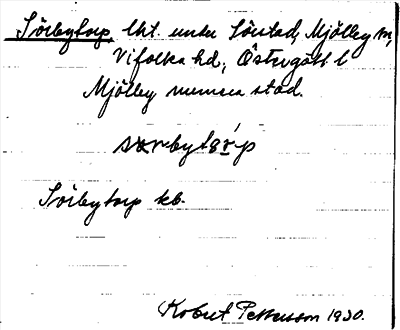 Sörbytorp, lht. under Sörstad, Mjölby sn,
Vifolka hd, Östergötl l
Mjölby numera stad.
Sörbytorp kb.
Robert Pettersson 1930.